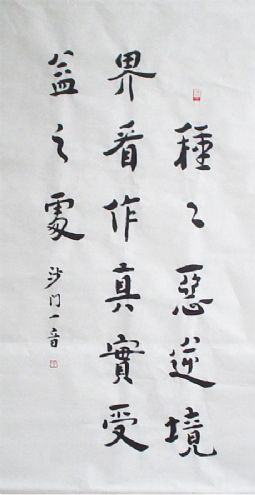 種〻惡逆境
界看作真實受
益之處
沙門一音